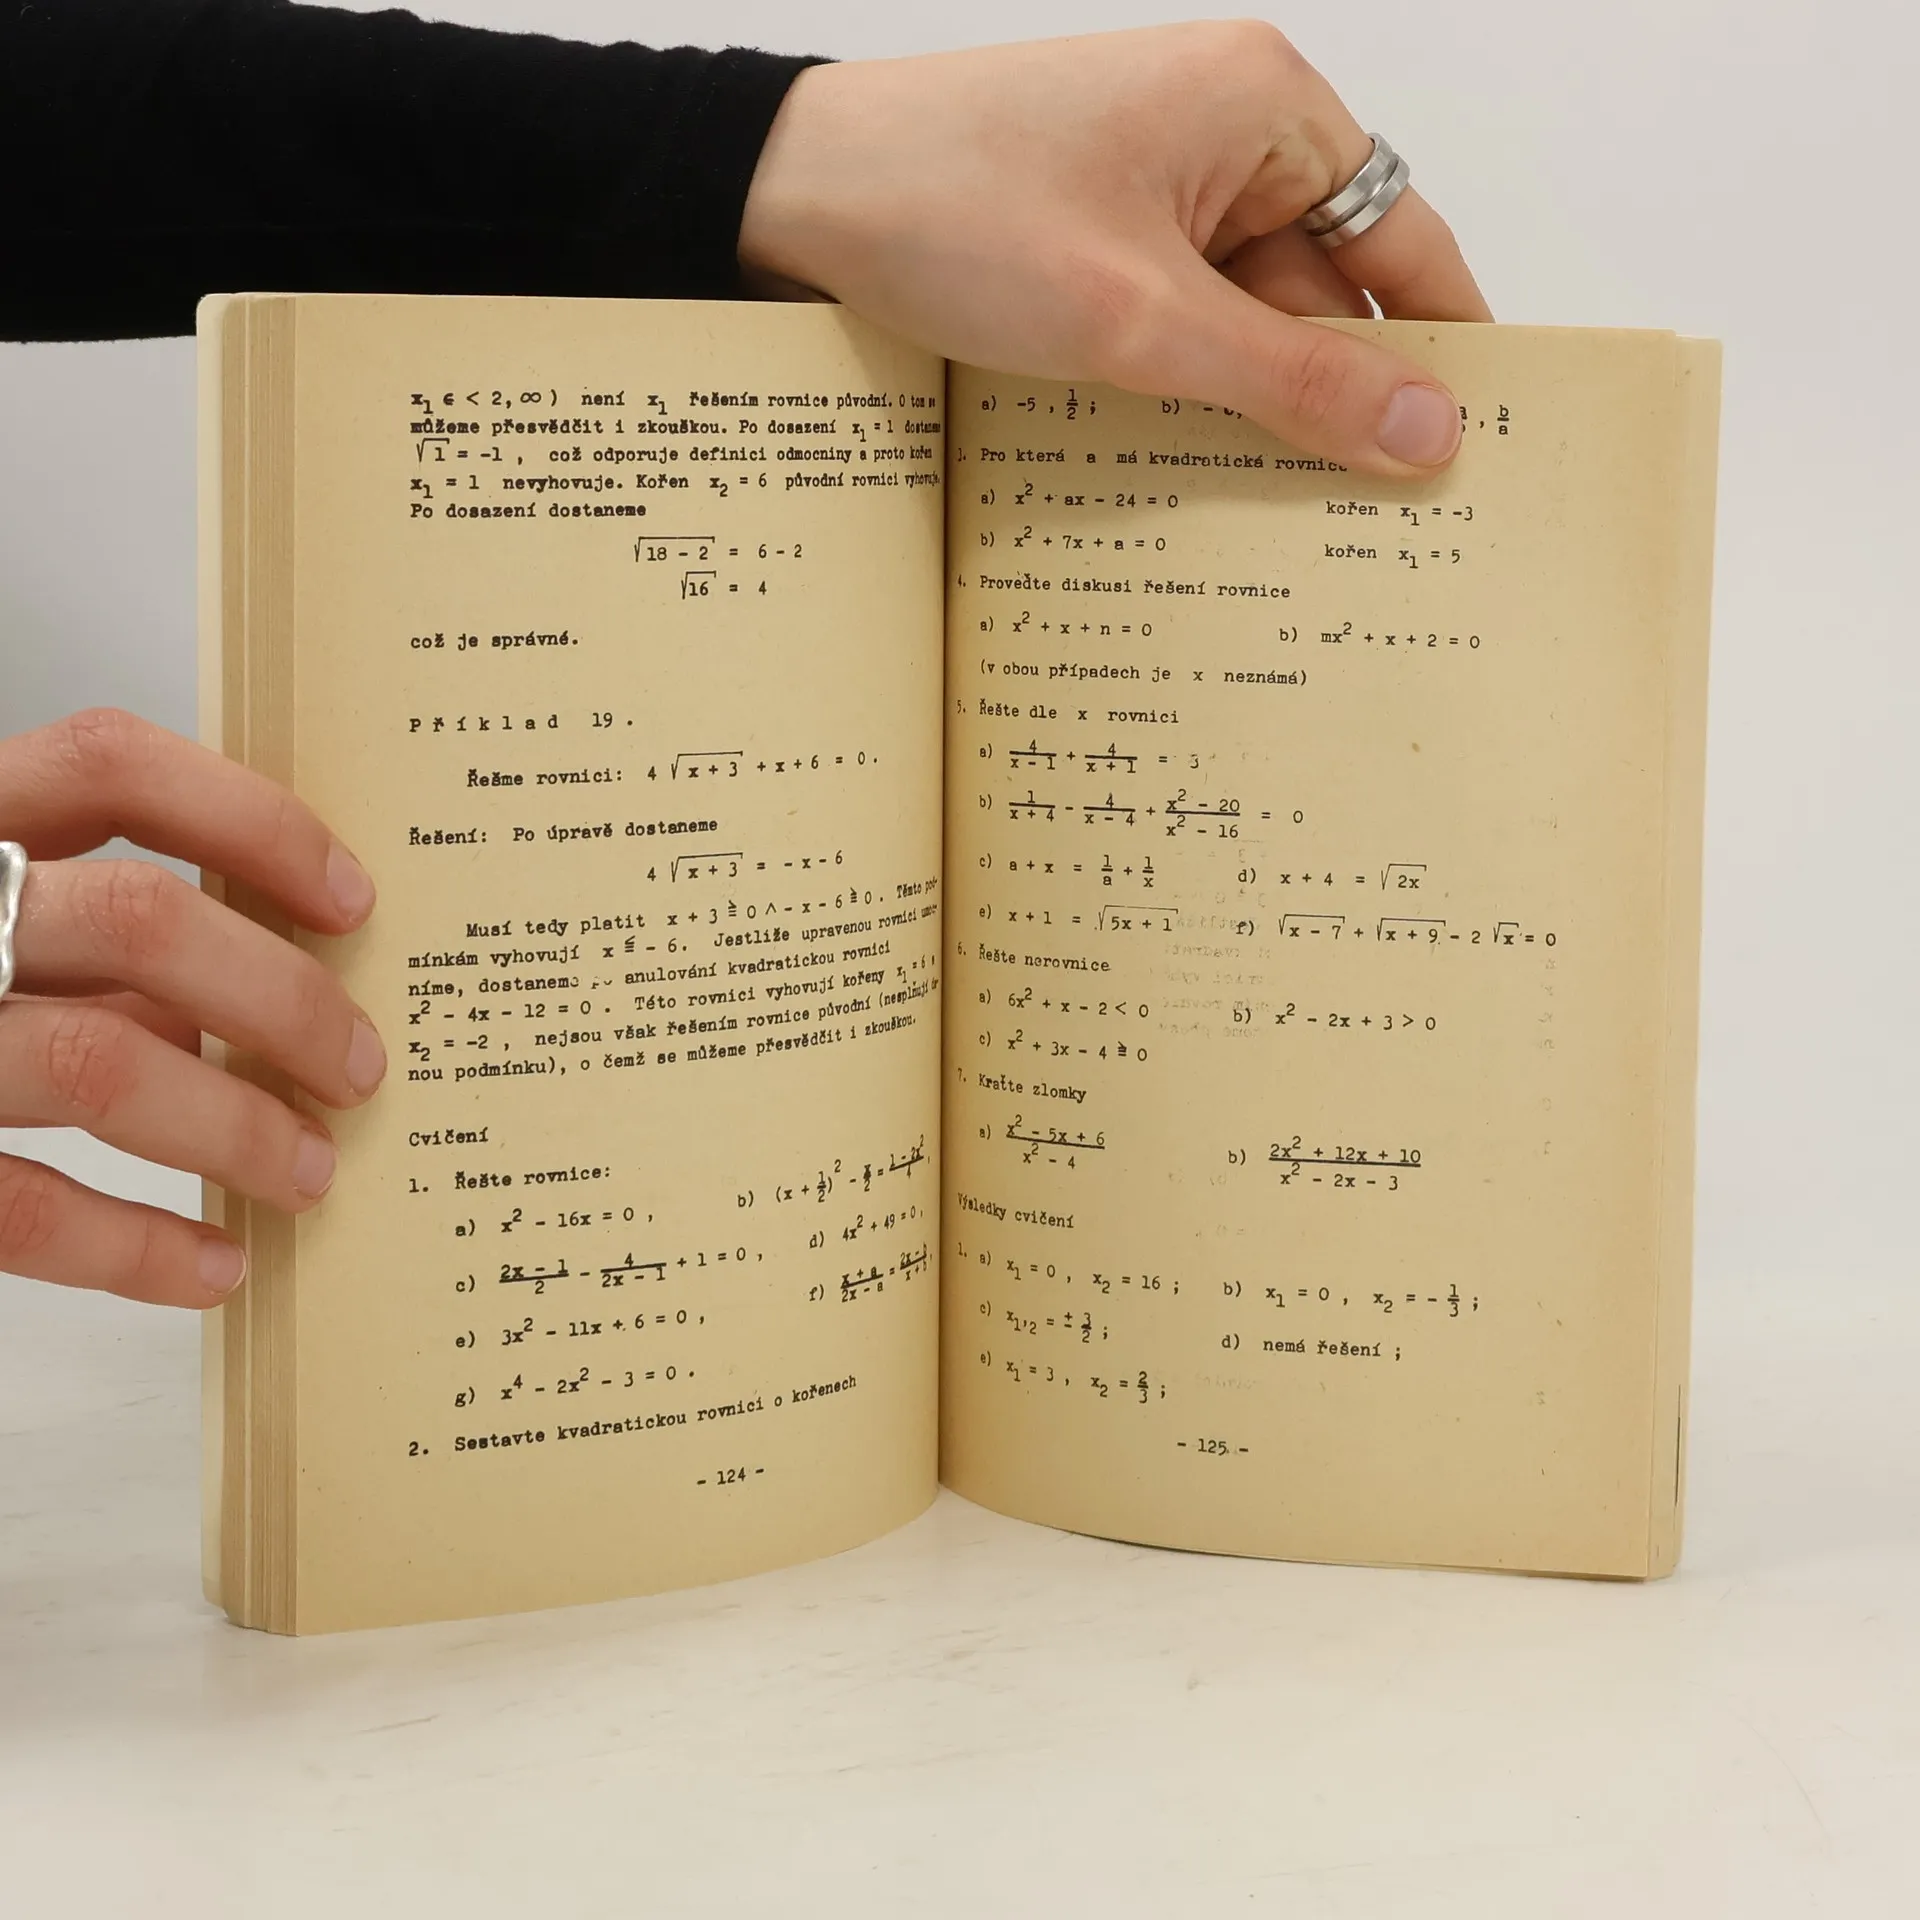 x₁ ∈ < 2, ∞ ) není x₁ řešením rovnice původní. O tom se
můžeme přesvědčit i zkouškou. Po dosazení x₁ = 1 dostaneme
√1 = -1 , což odporuje definici odmocniny a proto kořen
x₁ = 1 nevyhovuje. Kořen x₂ = 6 původní rovnici vyhovuje.
Po dosazení dostaneme
√(18 - 2) = 6 - 2
√16 = 4
což je správné.
Příklad 19.
Řešme rovnici: 4 √(x + 3) + x + 6 = 0.
Řešení: Po úpravě dostaneme
4 √(x + 3) = - x - 6
Musí tedy platit x + 3 ≧ 0 ∧ - x - 6 ≧ 0. Těmto pod-
mínkám vyhovují x ≦ - 6. Jestliže upravenou rovnici umoc-
níme, dostaneme po anulování kvadratickou rovnici
x² - 4x - 12 = 0. Této rovnici vyhovují kořeny x₁ = 6 a
x₂ = -2 , nejsou však řešením rovnice původní (nesplňují
nou podmínku), o čemž se můžeme přesvědčit i zkouškou.
Cvičení
1. Řešte rovnice:
a) x² - 16x = 0 , b) (x + 1/2)² - x/2 = (1 - 2x²)/4 ,
c) (2x - 1)/2 - 4/(2x - 1) + 1 = 0 , d) 4x² + 49 = 0 ,
e) 3x² - 11x + 6 = 0 , f) (x + a)/(2x - a) =
g) x⁴ - 2x² - 3 = 0 .
2. Sestavte kvadratickou rovnici o kořenech
- 124 -
a) -5 , 1/2 ; b) - , b/a
3. Pro která a má kvadratická rovnice
a) x² + ax - 24 = 0 kořen x₁ = -3
b) x² + 7x + a = 0 kořen x₁ = 5
4. Proveďte diskusi řešení rovnice
a) x² + x + n = 0 b) mx² + x + 2 = 0
(v obou případech je x neznámá)
5. Řešte dle x rovnici
a) 4/(x - 1) + 4/(x + 1) = 3
b) 1/(x + 4) - 4/(x - 4) + (x² - 20)/(x² - 16) = 0
c) a + x = 1/a + 1/x d) x + 4 = √(2x)
e) x + 1 = √(5x + 1) f) √(x - 7) + √(x + 9) - 2 √x = 0
6. Řešte nerovnice
a) 6x² + x - 2 < 0 b) x² - 2x + 3 > 0
c) x² + 3x - 4 ≧ 0
7. Kraťte zlomky
a) (x² - 5x + 6)/(x² - 4) b) (2x² + 12x + 10)/(x² - 2x - 3)
Výsledky cvičení
1. a) x₁ = 0 , x₂ = 16 ; b) x₁ = 0 , x₂ = - 1/3 ;
c) x₁,₂ = ± 3/2 ; d) nemá řešení ;
e) x₁ = 3 , x₂ = 2/3 ;
- 125 -